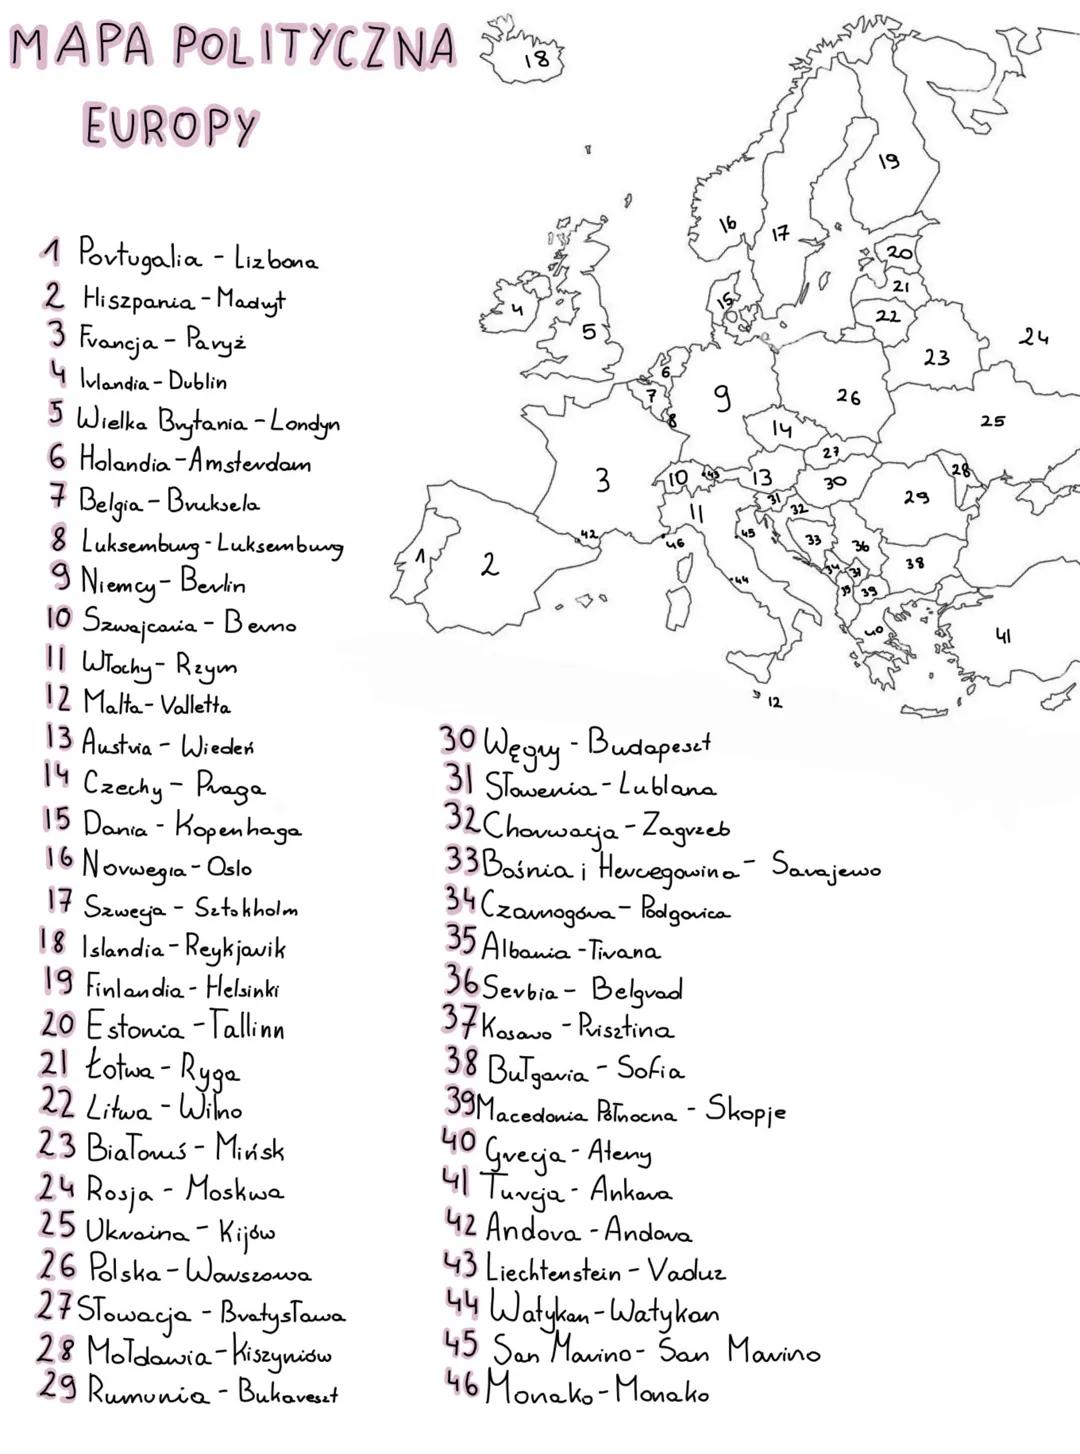 MAPA POLITYCZNA
EUROPY
1 Portugalia - Lizbona
2 Hiszpania - Madryt
3 Francja - Paryż
4 Irlandia - Dublin
5 Wielka Brytania - Londyn
6 Holandia - Amsterdam
7 Belgia - Bruksela
8 Luksemburg - Luksemburg
9 Niemcy - Berlin
10 Szwajcaria - Berno
11 Włochy - Rzym
12 Malta - Valletta
13 Austria - Wiedeń
14 Czechy - Praga
15 Dania - Kopenhaga
16 Norwegia - Oslo
17 Szwecja - Sztokholm
18 Islandia - Reykjavik
19 Finlandia - Helsinki
20 Estonia - Tallinn
21 Łotwa - Ryga
22 Litwa - Wilno
23 Białoruś - Mińsk
24 Rosja - Moskwa
25 Ukraina - Kijów
26 Polska - Warszawa
27 Słowacja - Bratysława
28 Mołdawia - Kiszyniów
29 Rumunia - Bukareszt
30 Węgry - Budapeszt
31 Słowenia - Lublana
32 Chorwacja - Zagrzeb
33 Bośnia i Hercegowina - Sarajewo
34 Czarnogóra - Podgorica
35 Albania - Tirana
36 Serbia - Belgrad
37 Kosowo - Prisztina
38 Bułgaria - Sofia
39 Macedonia Północna - Skopje
40 Grecja - Ateny
41 Turcja - Ankara
42 Andora - Andora
43 Liechtenstein - Vaduz
44 Watykan - Watykan
45 San Marino - San Marino
46 Monako - Monako
18
19
16
17
20
21
4
15
22
5
24
23
6
7
9
26
8
14
25
27
28
3
10
43
13
30
31
29
11
32
42
45
33
36
46
1
2
34
37
38
44
35
39
40
41
12